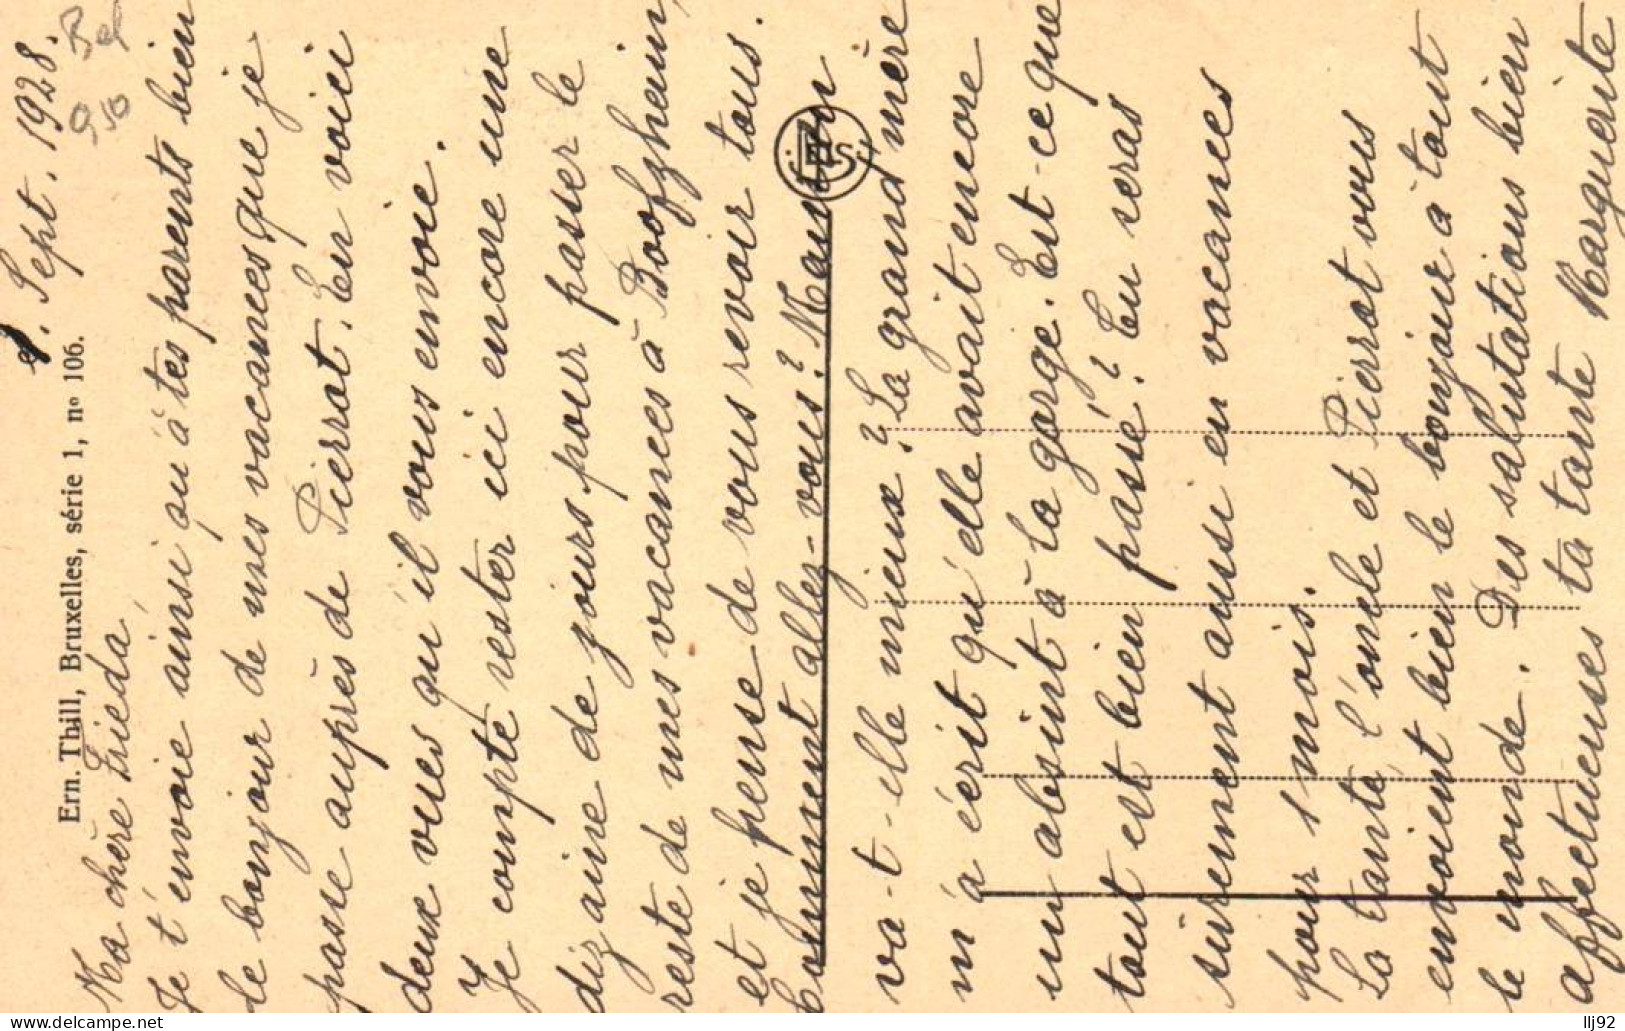 Sept. 1928.
Bel
9,50
Ern. Thill, Bruxelles, série 1, nº 106.
Ma chère Frieda,
Je t'envoie ainsi qu'à tes parents bien
le bonjour de mes vacances que je
passe auprès de Pierrot. En voici
deux vues qu'il vous envoie.
Je compte rester ici encore une
dizaine de jours pour passer le
reste de mes vacances à Boofzheim,
et je pense de vous revoir tous.
Comment allez-vous? Maman
va-t-elle mieux? La grand'mère
m'a écrit qu'elle avait encore
un absint à la gorge. Est-ce que
tout est bien passé? Tu seras
sûrement aussi en vacances
pour 1 mois.
La tante, l'oncle et Pierrot vous
envoient bien le bonjour à tout
le monde. Des salutations bien
affectueuses ta tante Marguerite
llj92